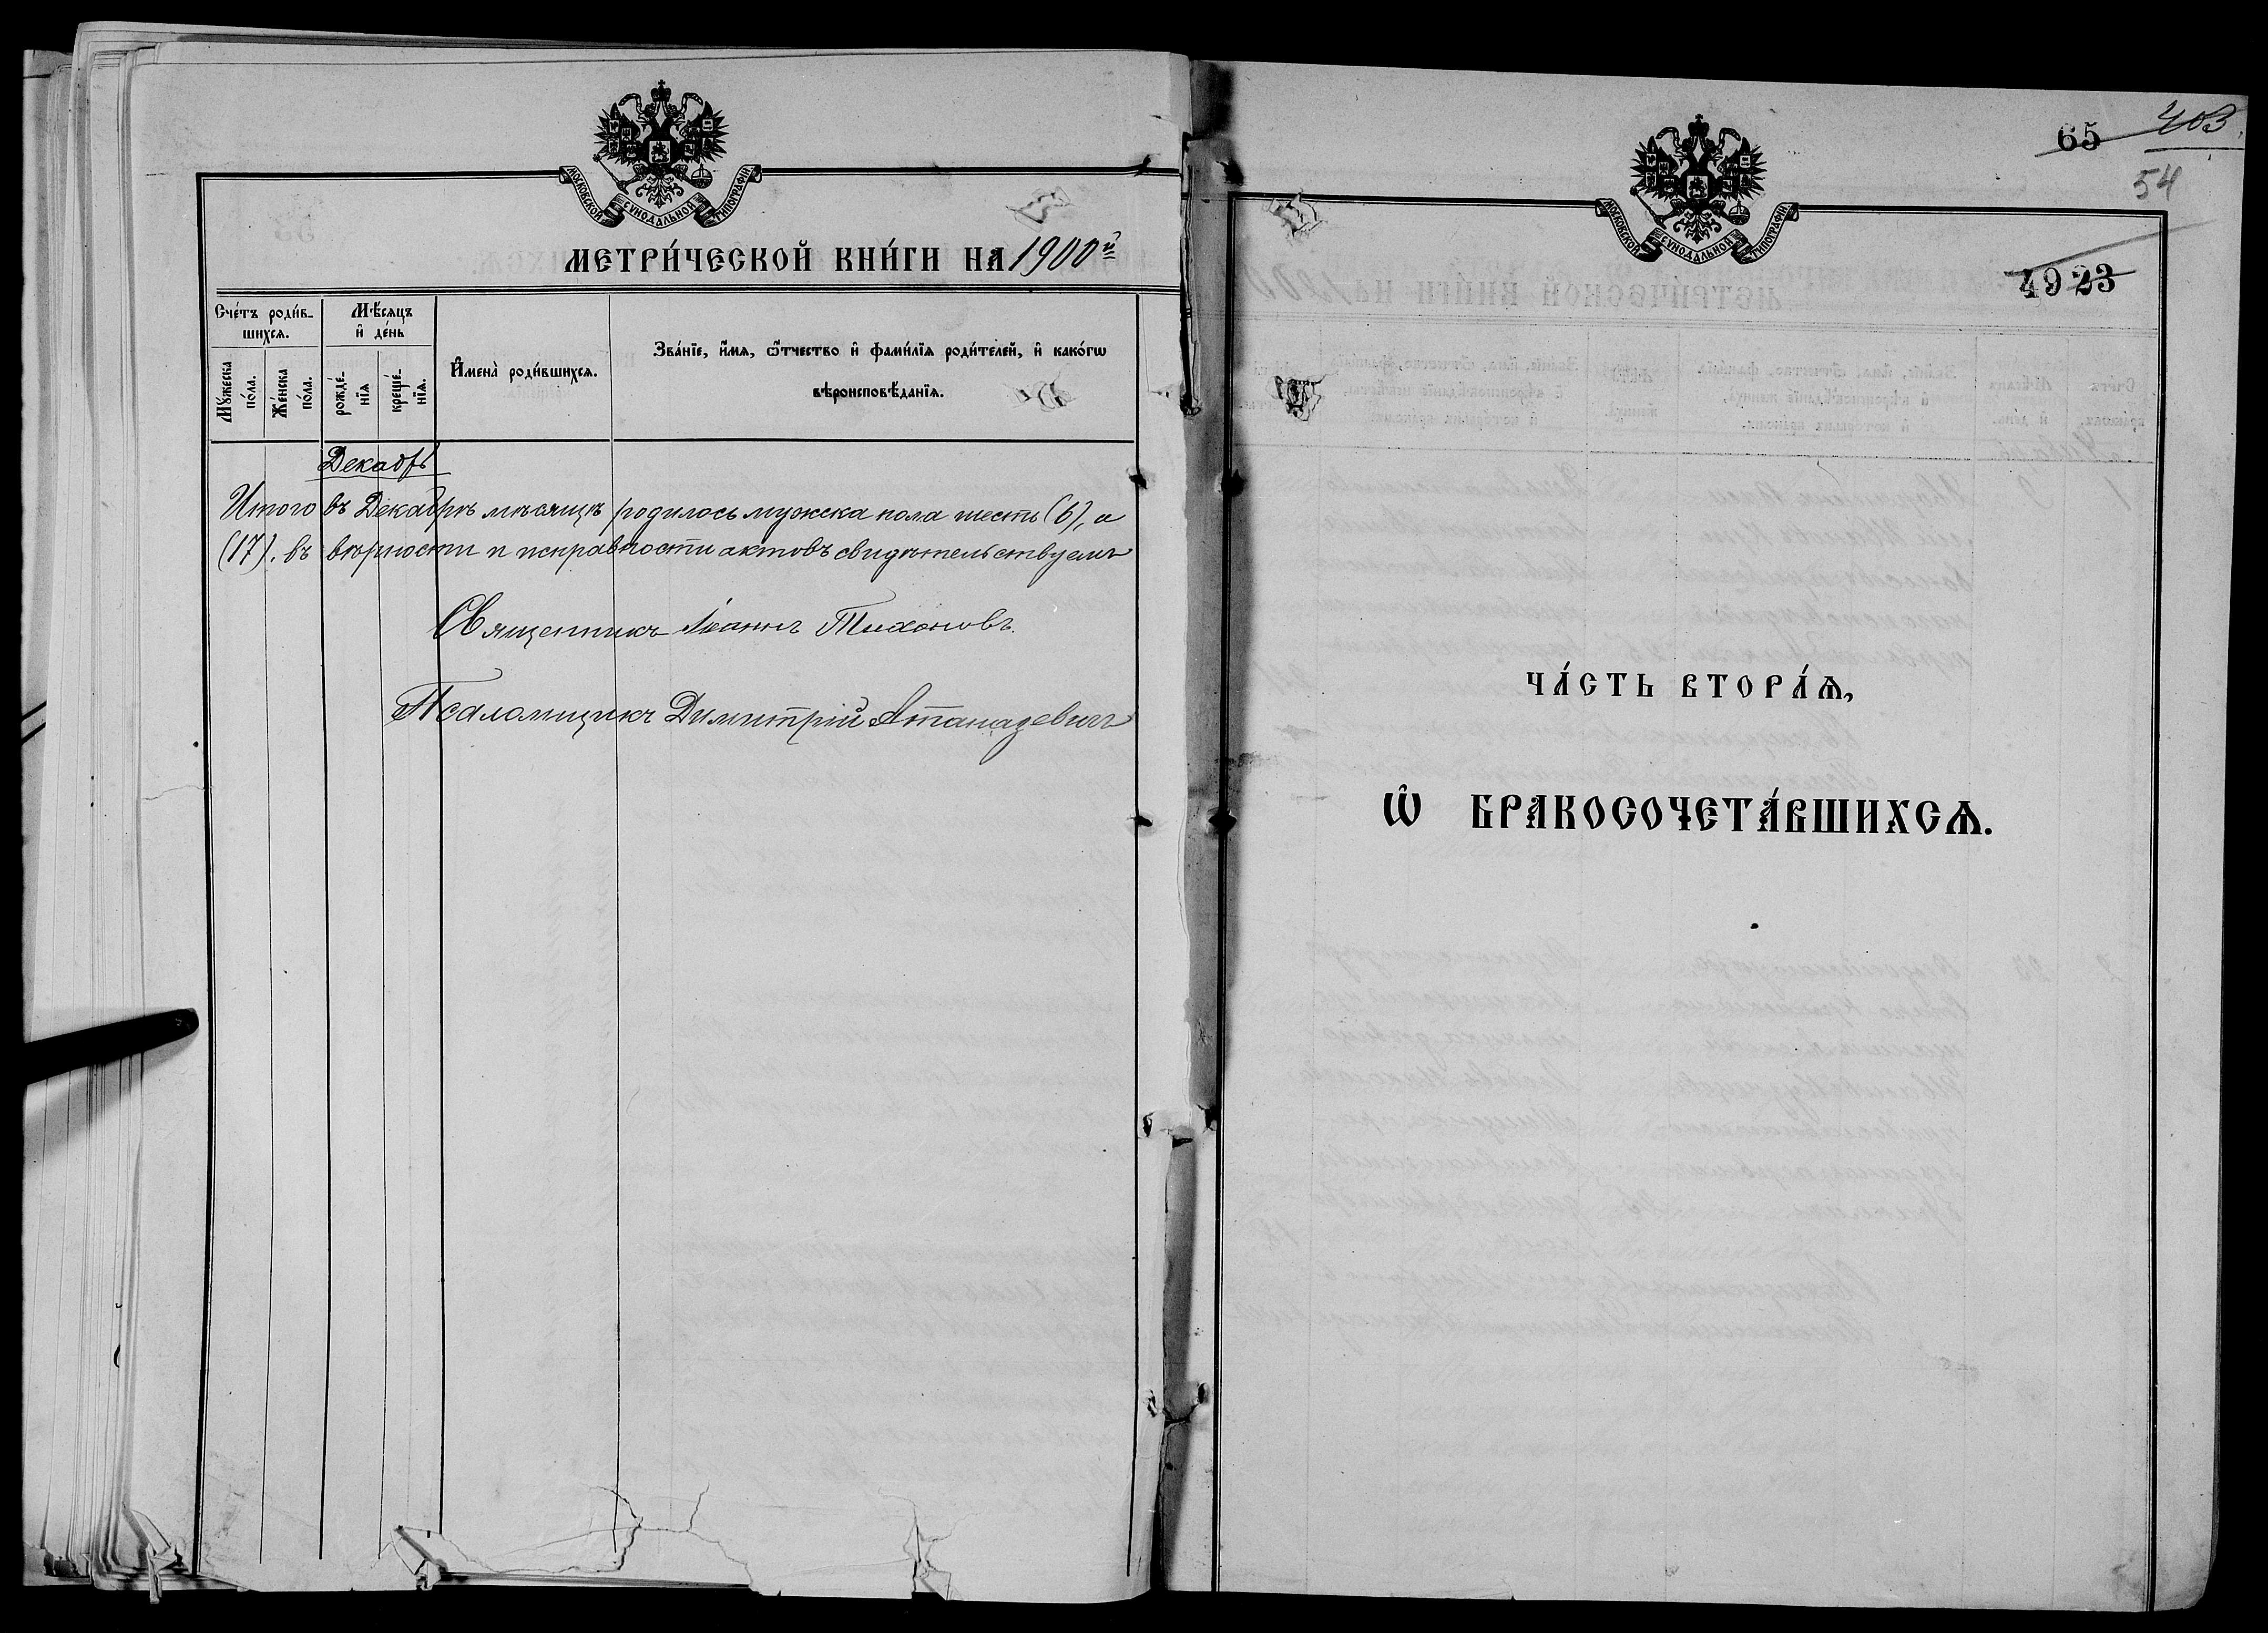 МОСКОВСКОЙ СѴНОДАЛЬНОЙ ТИПОГРАФІИ
МЕТРИ́ЧЕСКОЙ КНИ́ГИ НА 1900й
Сче́тъ роди́вшихся.
Мѣ́сяцъ и҆ де́нь
И҆мена̀ роди́вшихся.
Зва́нїе, и҆́мя, ѻ҆́тчество и҆ фами́лїя роди́телей, и҆ како́гѡ
вѣроисповѣ́данїя.
Мꙋ́жеска по́ла.
Же́нска по́ла.
рожде́нїя
креще́нїя.
Декабрь
Итого въ Декабрѣ мѣсяцѣ родилось мужска пола шесть (6), а
(17). въ вѣрности и исправности актовъ свидѣтельствуемъ
Священникъ Іоаннъ Тихоновъ.
Псаломщикъ Димитрій Атаназевичъ
403
65
54
МОСКОВСКОЙ СѴНОДАЛЬНОЙ ТИПОГРАФІИ
49 23
ЧА́СТЬ ВТОРА́Ѧ,
Ѡ҆ БРАКОСОЧЕТА́ВШИХСѦ.